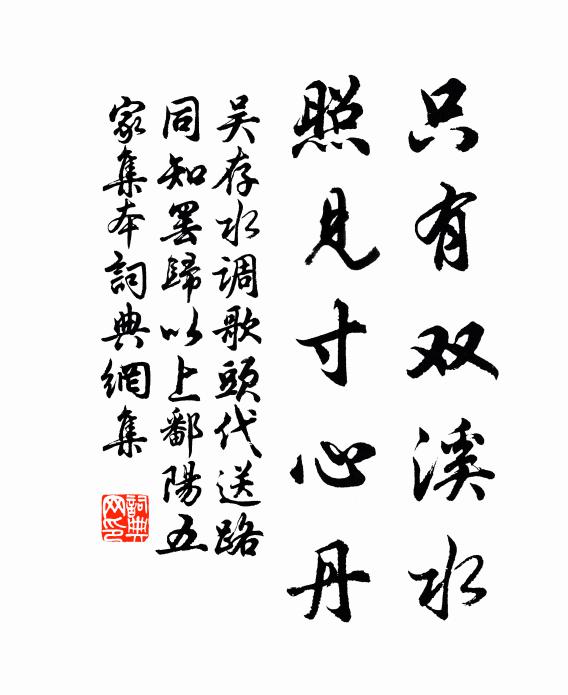 只有双溪水
照见寸心丹
吴存水调歌头代送路
同知罢歸以上鄱陽五
家集本詞典網集
詞典网印